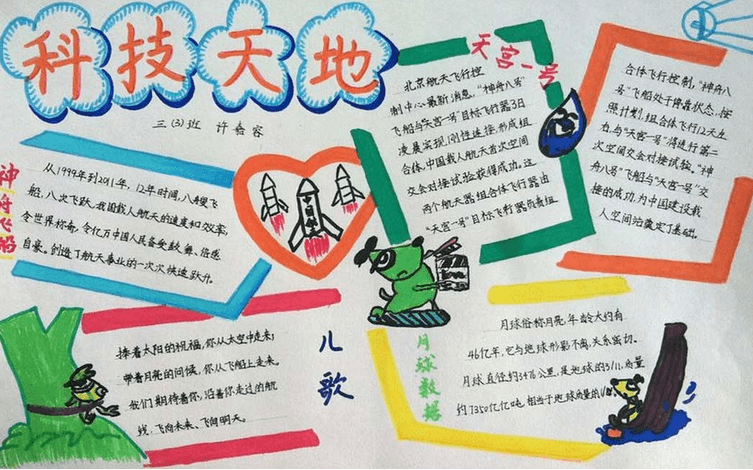 科技天地
三(3)班 许睿容
神舟飞船
从1999年到2011年，12年时间，八艘飞
船，八次飞跃，我国载人航天的速度和效率，
令世界称奇，令亿万中国人民备受鼓舞、倍感
自豪，创造了航天事业的一次次快速跃升。
中国航天
天宫一号
北京航天飞行控
制中心最新消息，"神舟八号"
飞船与"天宫一号"目标飞行器3日
凌晨实现刚性连接，形成组
合体，中国载人航天首次空间
交会对接试验获得成功。这
两个航天器组合体飞行器由
"天宫一号"目标飞行器负责组
合体飞行控制，"神舟八
号"飞船处于停靠状态，按
照计划，组合体飞行12天左
右，与"天宫一号"将进行第二
次空间交会对接试验。"神
舟八号"飞船与"天宫一号"交
接的成功，为中国建设载
人空间站奠定了基础。
儿歌
捧着太阳的祝福，你从太空中走来；
带着月亮的问候，你从飞船上走来。
我们期待着你，沿着你走过的航
线，飞向未来、飞向明天。
月球数据
月球俗称月亮，年龄大约有
46亿年，它与地球形影不离，关系密切。
月球直径约3476公里，是地球的3/11，质量
约7350亿亿吨，相当于地球质量的1/81